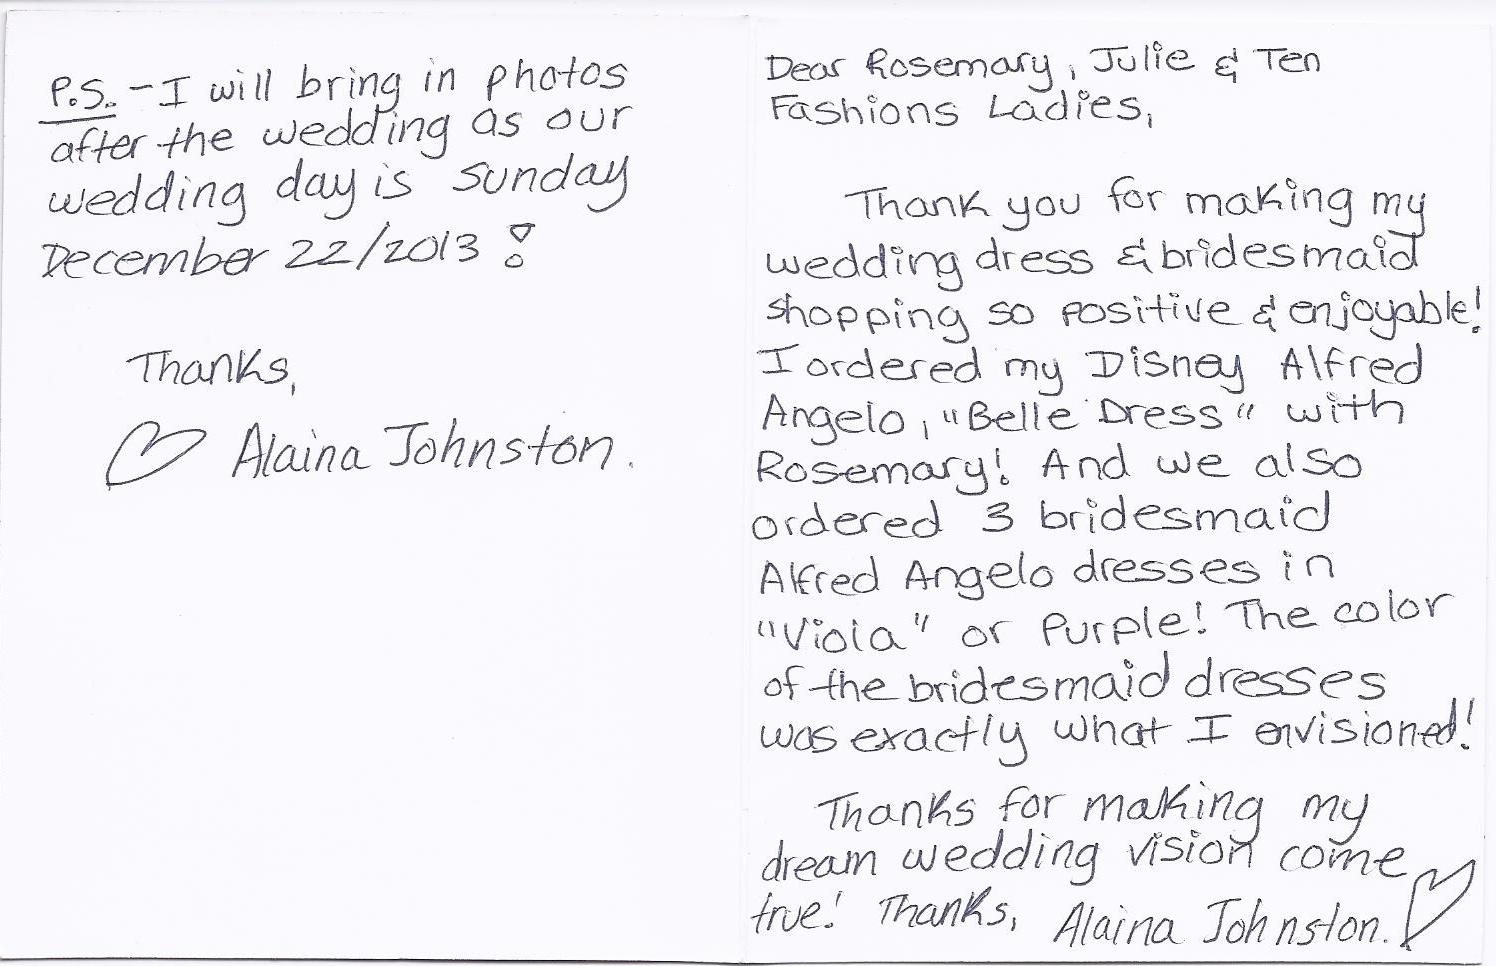 Dear Rosemary, Julie & Ten
Fashions Ladies,
Thank you for making my
wedding dress & bridesmaid
shopping so positive & enjoyable!
I ordered my Disney Alfred
Angelo, "Belle Dress" with
Rosemary! And we also
ordered 3 bridesmaid
Alfred Angelo dresses in
"Viola" or Purple! The color
of the bridesmaid dresses
was exactly what I envisioned!
Thanks for making my
dream wedding vision come
true! Thanks, Alaina Johnston.
P.S. - I will bring in photos
after the wedding as our
wedding day is Sunday
December 22/2013!
Thanks,
Alaina Johnston.